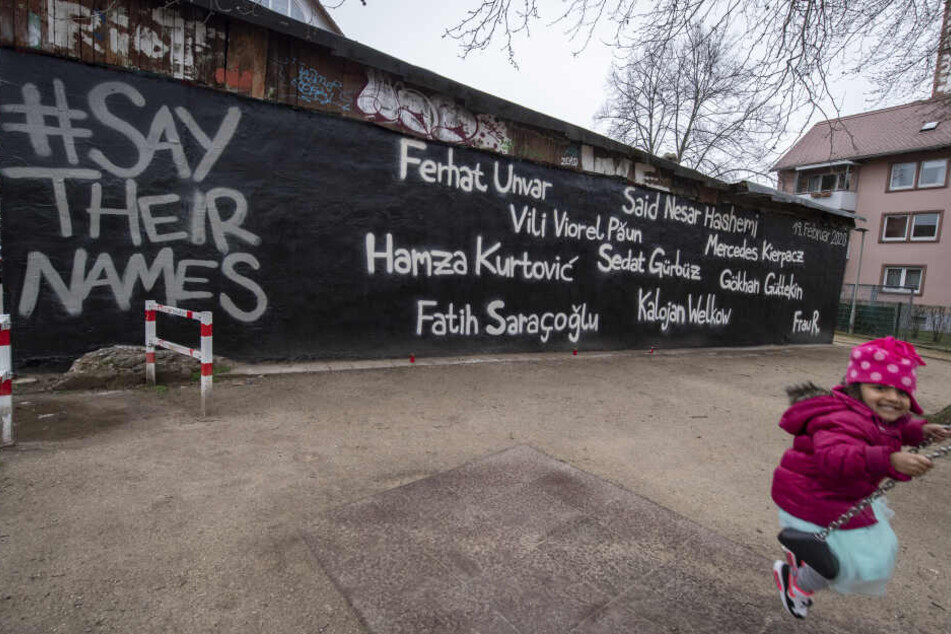 #SAY
THEIR
NAMES
Ferhat Unvar
Said Nesar Hashemi
Vili Viorel Păun
19. Februar 2020
Mercedes Kierpacz
Hamza Kurtović
Sedat Gürbüz
Gökhan Gültekin
Fatih Saraçoğlu
Kalojan Welkow
Frau R.